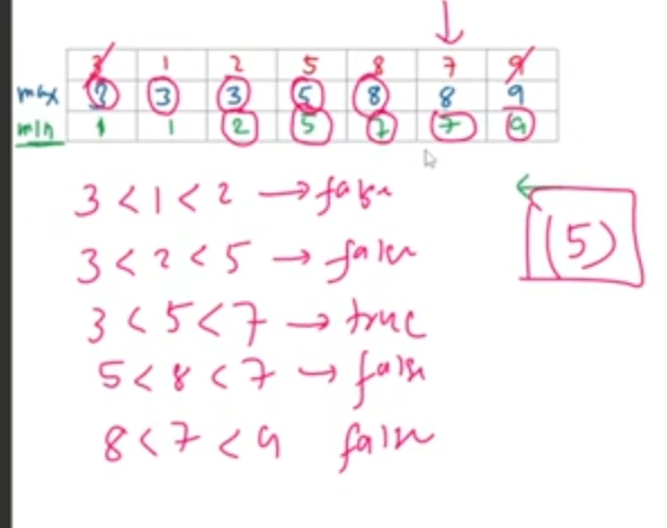 3 1 2 5 8 7 9
max 3 3 3 5 8 8 9
min 1 1 2 5 7 7 9
3 < 1 < 2 → false
3 < 2 < 5 → false
3 < 5 < 7 → true
5 < 8 < 7 → false
8 < 7 < 9 false
(5)